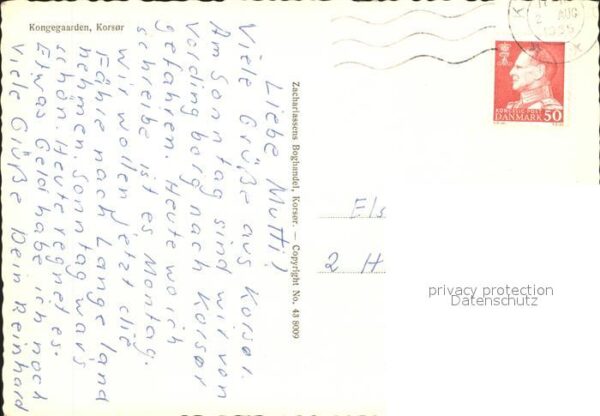 Kongegaarden, Korsør
Liebe Mutti!
Viele Grüße aus Korsør.
Am Sonntag sind wir von
Vordingborg nach Korsør
gefahren. Heute wo ich
schreibe ist es Montag.
Wir wollen jetzt die
Fähre nach Langeland
nehmen. Sonntag war's
schön. Heute regnet es.
Etwas Geld habe ich noch
Viele Grüße Dein Reinhard
Zachariassens Boghandel, Korsør. — Copyright No. 43 8009
AUG
KONGELIG POST
DANMARK 50
Els
2 H
privacy protection
Datenschutz